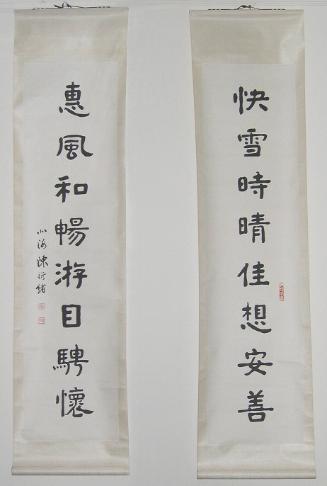 快雪時晴佳想安善
惠風和暢游目騁懷